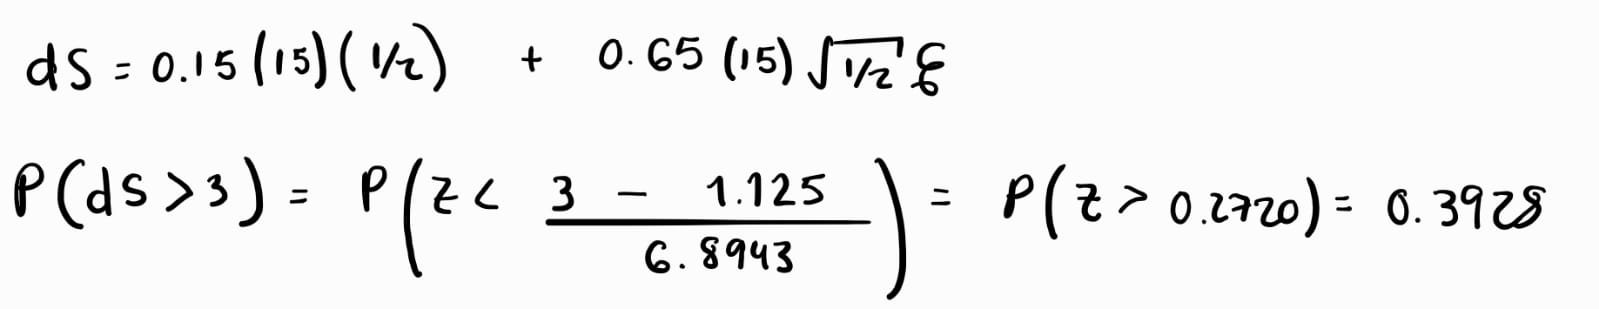 dS = 0.15 (15) (1/2) + 0.65 (15) √1/2 ξ
P(dS > 3) = P(Z < (3 - 1.125)/6.8943) = P(Z > 0.2720) = 0.3928